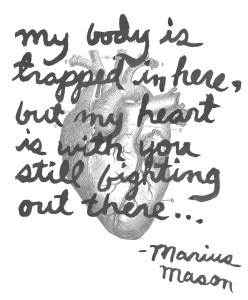 my body is
trapped in here,
but my heart
is with you
still fighting
out there...
-Marius
Mason